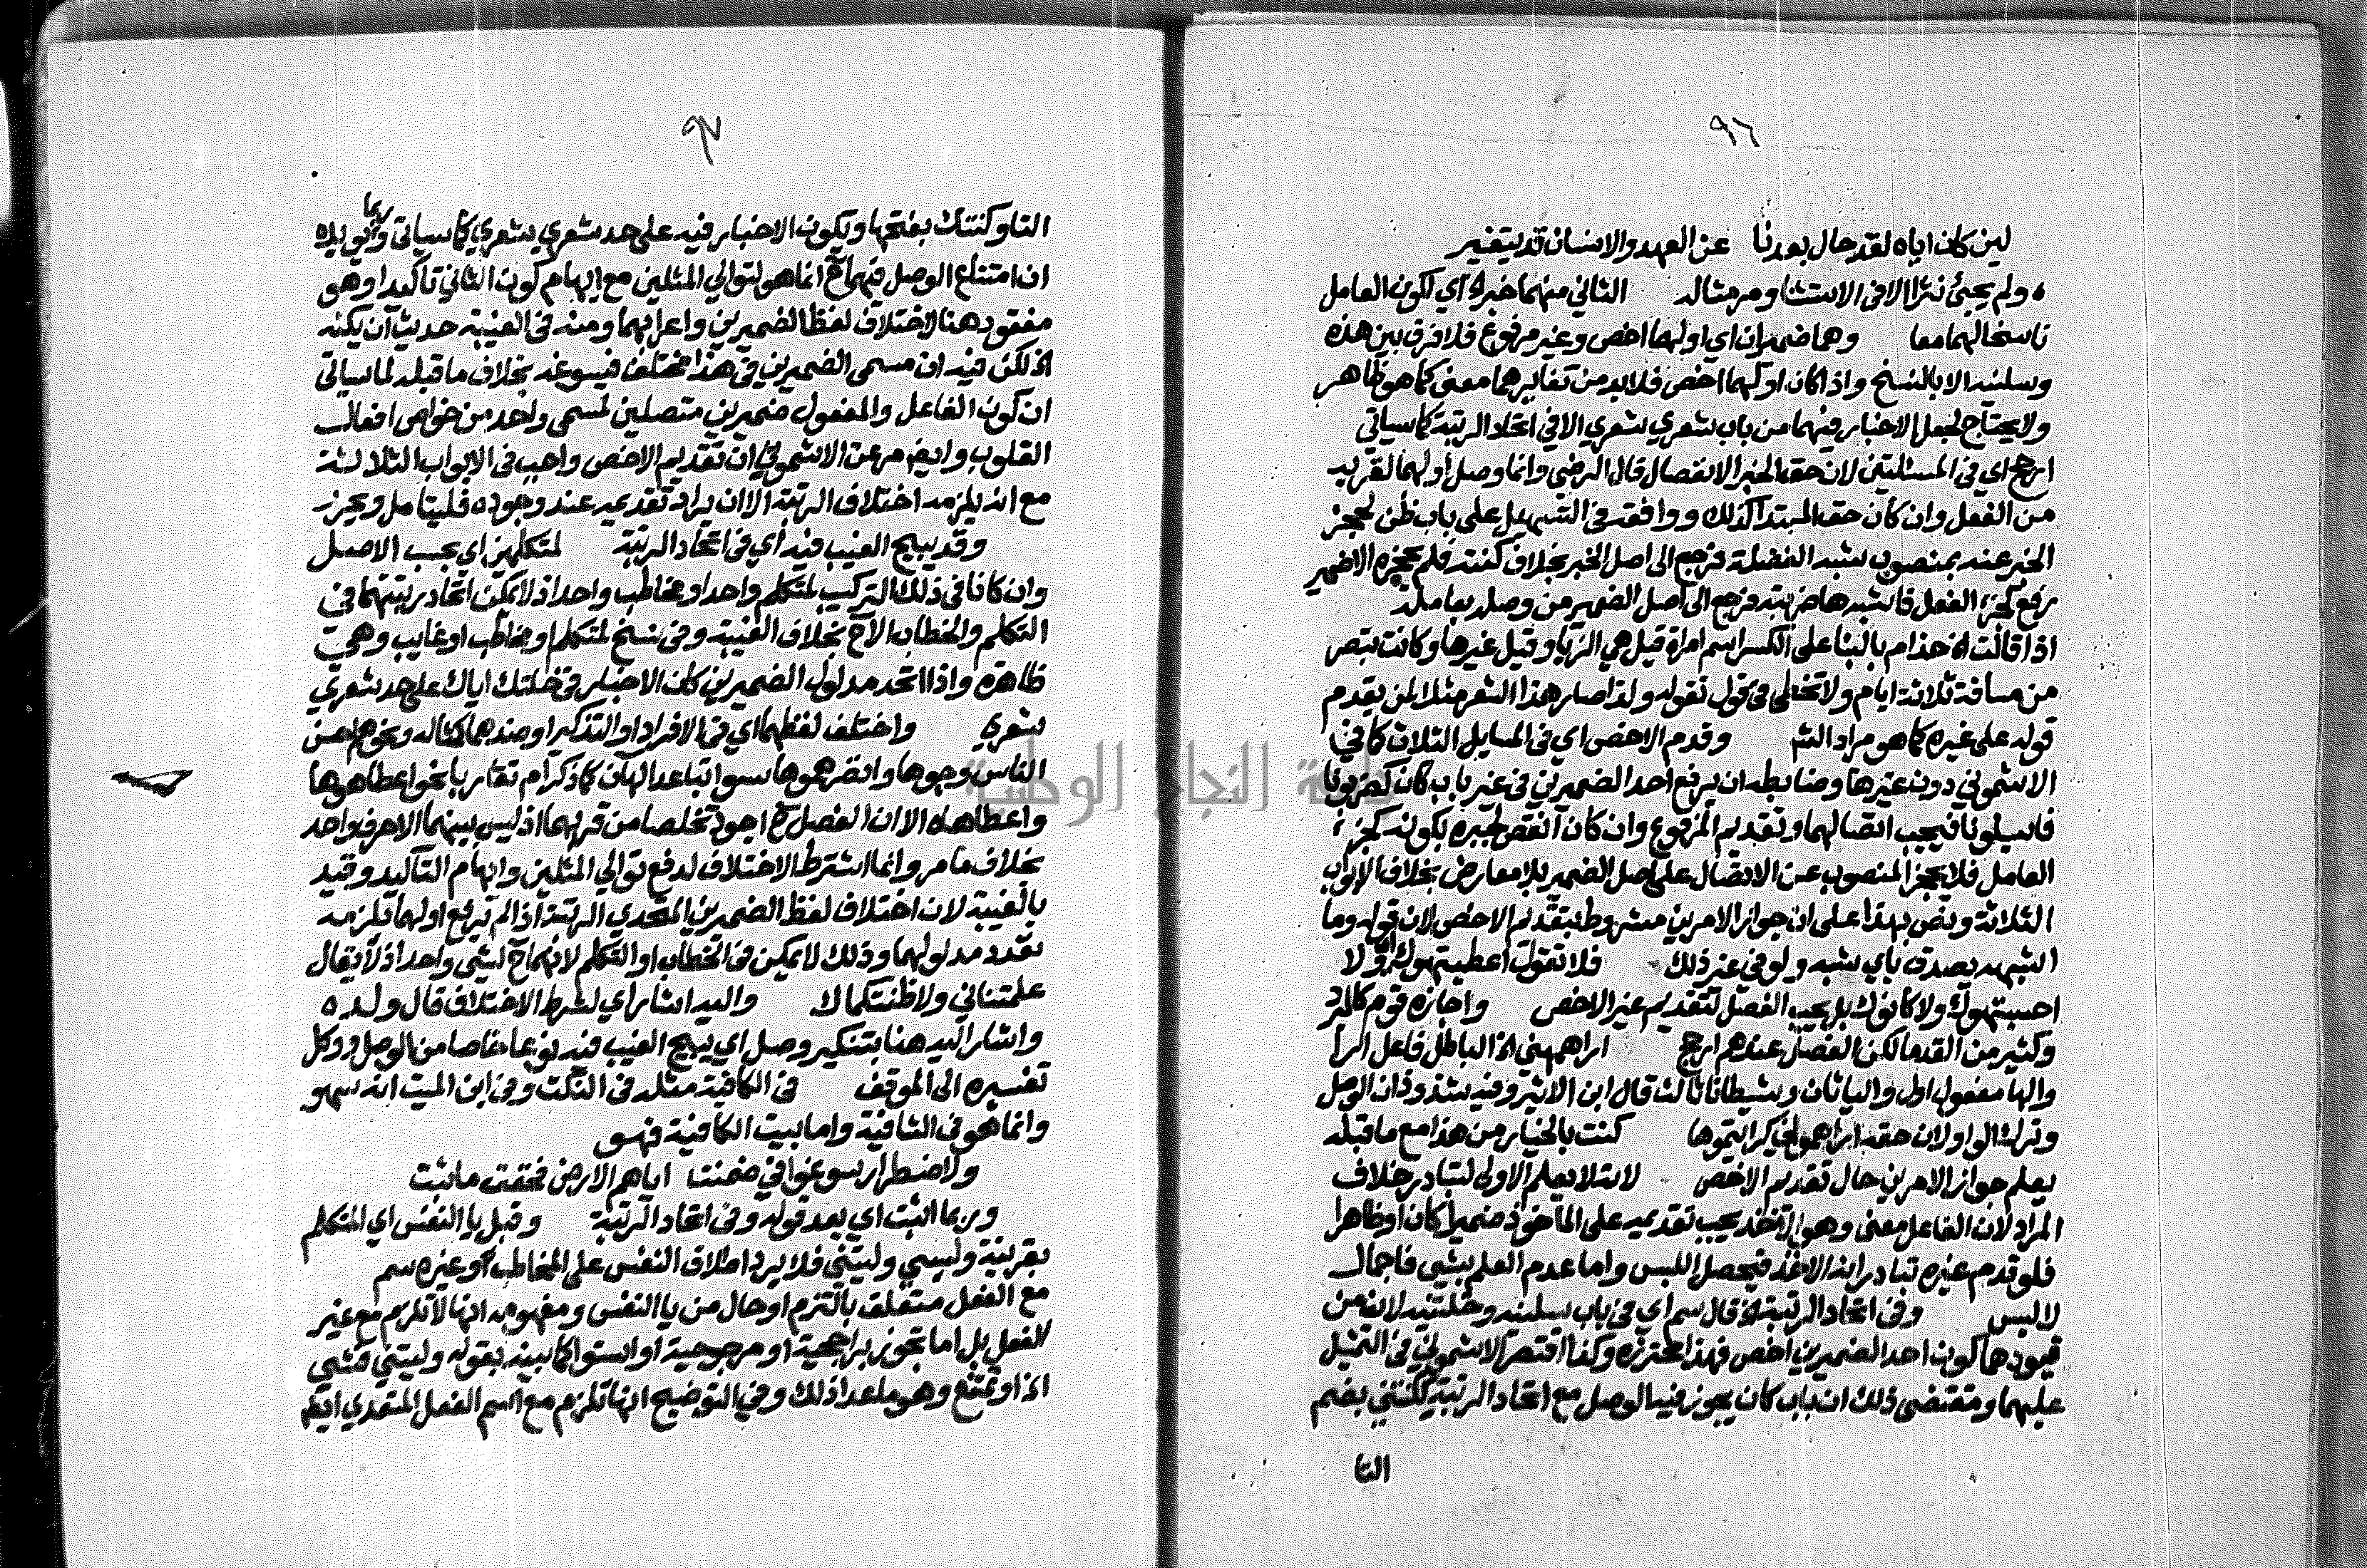 ٩٦
لين كان اياه لقد حال بعدنا عن العهد والانسان قد يتغير
ه ولم يجئ نثرا الا في الاستثنا ومر مثاله الثاني منهما خبرا اه اي لكون العامل
ناسخا لهما معا وهما ضميران اي اولهما اخص وغير مرفوع فلا فرق بين هذه
وسلنيه الا بالنسخ واذا كان اولهما اخص فلا بد من تغايرهما معنى كما هو ظاهر
ولا يحتاج لجعل الاخبار فيهما من باب شعري شعري الا في اتحاد الرتبة كما سياتي
ارجح اي في المسئلتين لان حق الخبر الانفصال قال الرضي وانما وصل اولهما لقربه
من الفعل وان كان حق المبتدا كذلك ووافقه في التسهيل على باب ظن لحجز
الخبر عنه بمنصوب يشبه الفضلة فرجع الى اصل الخبر بخلاف كنته فلم يحجزه الا ضمير
رفع كجزء الفعل فاشبه ها ضربته فرجع الى اصل الضمير من وصله بعامله
اذا قالت اه حذام بالبنا على الكسر اسم امراة قيل هي الزبا وقيل غيرها وكانت تبصر
من مسافة ثلاثة ايام ولا تخطي في قول تقوله ولذا صار هذا الشعر مثلا لمن يقدم
قوله على غيره كما هو مراد الش وقدم الاخص اي في المسايل الثلاث كما في
الاشموني دون غيرها وضابطه ان يرفع احد الضميرين في غير باب كان كضربونا
فارسلونا فيجب اتصالهما وتقديم المرفوع وان كان انقص لجبره بكونه كجزء
العامل فلا يحجز المنصوب عن الاتصال على اصل الضمير بلا معارض بخلاف الابواب
الثلاثة ونص بهذا على ان جواز الامرين مشروط بتقديم الاخص لان قوله وما
اشبهه يصدق باي شبه ولو في غير ذلك فلا تقول اعطيتهوك اه ولا
احسبتهوك ولا كانوك بل يجب الفصل لتقديم غير الاخص واجازه قوم كالمبرد
وكثير من القدما لكن الفصل عندهم ارجح اراهمني اه الباطل فاعل ارا
والها مفعول اول واليا ثان وشيطانا ثالث قال ابن الاثير وفيه شذوذان الوصل
وترك الواو لان حقه اراهموني كرايتموها كنت بالخيار من هذا مع ما قبله
يعلم جواز الامرين حال تقديم الاخص لانتلا يعلم الاولى لتبادر خلاف
المراد لان الفاعل معنى وهو الآخذ يجب تقديمه على الماخوذ ضميرا كان او ظاهرا
فلو قدم غيره تبادر انه الاخذ فيحصل اللبس واما عدم العلم بشي فاجمال
لا لبس وفي اتحاد الرتبة اه قال سم اي في باب سلنيه وخلتنيه لان من
قيودهما كون احد الضميرين اخص فهذا محترزه وكذا اقتصر الاشموني في التمثيل
عليهما ومقتضى ذلك ان باب كان يجوز فيه الوصل مع اتحاد الرتبة ككنتني بضم
التا
٩٧
التا وكنتك بفتحها ويكون الاخبار فيه على حد شعري شعري كما سياتي وربما يؤيده
ان امتناع الوصل فيهما ح انما هو لتوالي المثلين مع ايهام كون الثاني تاكيدا وهو
مفقود هنا لاختلاف لفظ الضميرين واعرابهما ومنه في الغيبة حديث ان يكنه
اه لكن فيه ان مسمى الضميرين في هذا مختلف فيسوغه بخلاف ما قبله لما سياتي
ان كون الفاعل والمفعول ضميرين متصلين لمسمى واحد من خواص افعال
القلوب وايض مر عن الاشموني ان تقديم الاخص واجب في الابواب الثلاثة
مع انه يلزمه اختلاف الرتبة الا ان يراد تقديمه عند وجوده فليتامل ويحرر
وقد يبيح الغيب فيه اي في اتحاد الرتبة لمتكلمين اي بحسب الاصل
وان كانا في ذلك التركيب لمتكلم واحد او مخاطب واحد اذ لا يمكن اتحاد رتبتهما في
التكلم والخطاب الا ح بخلاف الغيبة وفي نسخ لمتكلم او مخاطب او غايب وهي
ظاهرة واذا اتحد مدلول الضميرين كان الاخبار في خلتك اياك على حد شعري
شعري واختلف لفظهما اي في الافراد او التذكير او ضدهما كمثاله ونحو هم احسن
الناس وجوها وانضرهموها سوا تباعد الهاآن كما ذكر ام تقاربا نحو اعطاهوها
واعطاهاه الا ان الفصل ح اجود تخلصا من قربهما اذ ليس بينهما الا حرف واحد
بخلاف ما مر وانما اشترط الاختلاف لدفع توالي المثلين وايهام التاكيد وقيد
بالغيبة لان اختلاف لفظ الضميرين المتحدي الرتبة اذا لم يرفع اولهما تلزمه
تعدد مدلولهما وذلك لا يمكن في الخطاب او التكلم لانهما ح لشي واحد اذ لا يقال
علمتناني ولا ظننتكماك واليه اشار اي لشرط الاختلاف قال ولده
واشار اليه هنا بتنكير وصل اي يبيح الغيب فيه نوعا خاصا من الوصل ووكل
تفسيره الى الموقف في الكافية مثله في النكت وفي ابن الميت انه سهو
وانما هو في الشافية واما بيت الكافية فهو
ولاضطرار سوغوا في ضمنت اياهم الارض فحققت ما ثبت
وربما اثبت اي بعد قوله وفي اتحاد الرتبة وقبل يا النفس اي المتكلم
بقرينة وليسي وليتني فلا يرد اطلاق النفس على المخاطب او غيره سم
مع الفعل متعلق بالتزم او حال من يا النفس ومفهومه انها لا تلزم مع غير
الفعل بل اما تجوز براجحية او مرجوحية او استوا كما بينه بقوله وليتني فشي
اه او تمتنع وهو ما عدا ذلك وفي التوضيح انها تلزم مع اسم الفعل المتعدي ايض